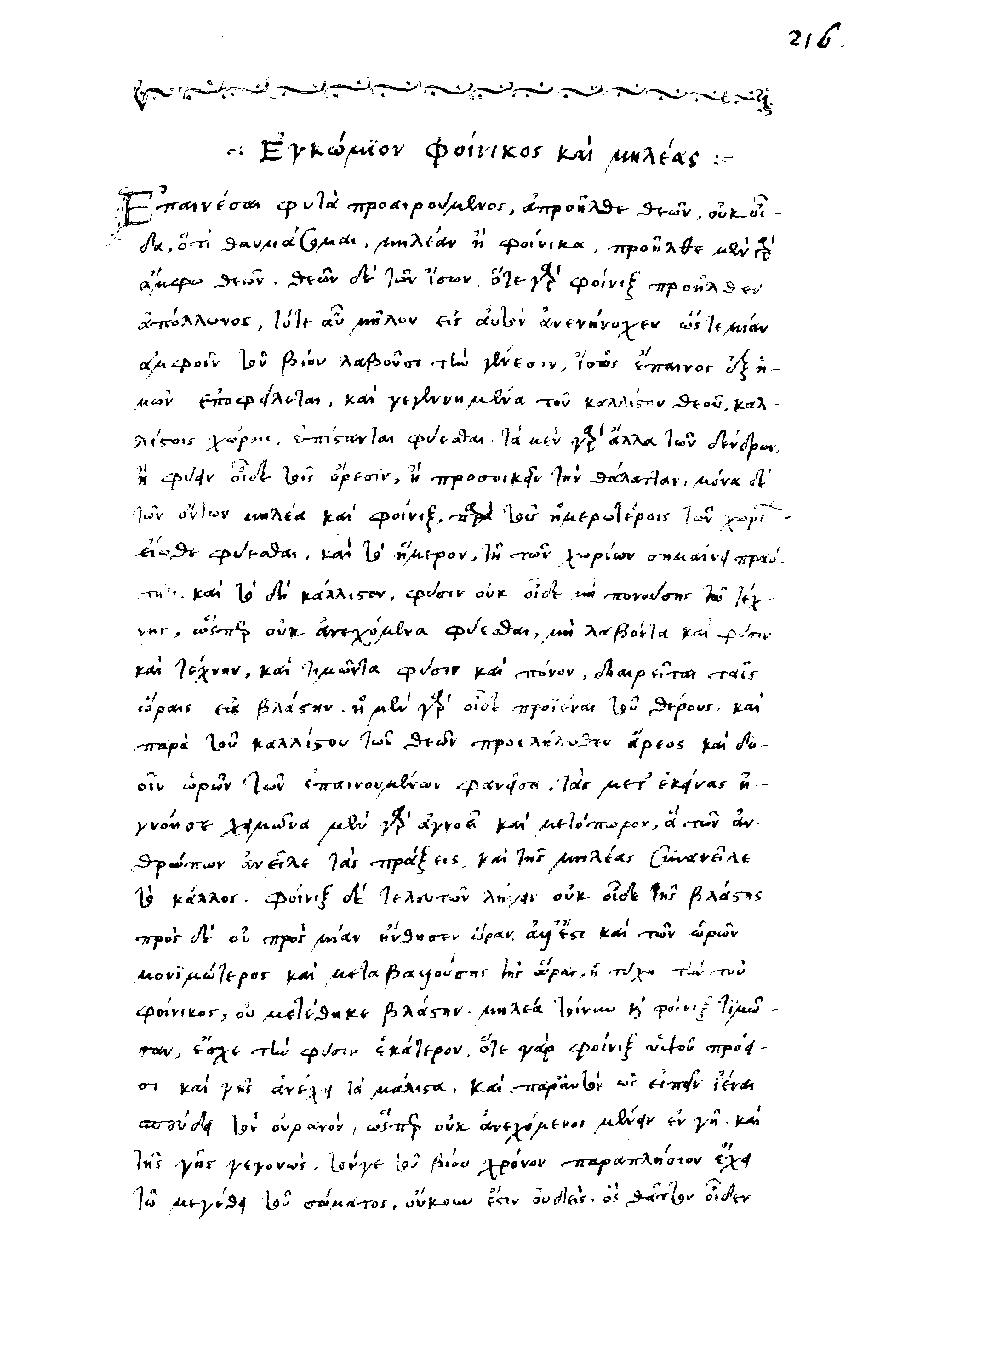 216.
Ἐγκώμιον φοίνικος καὶ μηλέας
Ἐπαινέσαι φυτὰ προαιρούμενος, ἃ προῆλθε θεῶν, οὐκ οἶ-
δα, ὅτι θαυμάσομαι, μηλέαν ἢ φοίνικα, προῆλθε μὲν γὰρ
ἄμφω θεῶν. θεῶν δὲ τῶν ἴσων, ὅτε γὰρ φοίνιξ προῆλθεν
ἀπόλλωνος, τότε αὖ μῆλον εἰς αὐτὸν ἀνενήνοχεν ὥστε μίαν
ἀμφοῖν τοῦ βίου λαβοῦσι τὴν γένεσιν, ἴσως ἔπαινος ἐξ ἡ-
μῶν ἐποφείλεται, καὶ γεγεννημένα τοῦ καλλίστου θεοῦ, καλ-
λίστοις χώροις, ἐπίστανται φύεσθαι. τὰ μὲν γὰρ ἄλλα τῶν δένδρων,
ἢ φύειν οἶδε τοῖς ὄρεσιν, ἢ προσοικεῖν τὴν θάλατταν, μόνα δὲ
τῶν ὄντων μηλέα καὶ φοίνιξ, παρὰ τοῖς ἡμερωτέροις τῶν χωρί-
εἴωθε φύεσθαι, καὶ τὸ ἥμερον, τῇ τῶν χωρίων σημαίνει πραό-
τητι. καὶ τὸ δὴ κάλλιστον, φύσιν οὐκ οἶδε μὴ πονούσης τῆς τέχ-
νης, ὥσπερ οὐκ ἀνεχόμενα φύεσθαι, μὴ λαβόντα καὶ φύσιν
καὶ τέχνην, καὶ τιμῶντα φύσιν καὶ πόνον, διαιρεῖται ταῖς
ὥραις εἰς βλάστην. ἡ μὲν γὰρ οἶδε προϊέναι τοῦ θέρους, καὶ
παρὰ τοῦ καλλίστου τῶν θεῶν προελήλυθεν ἄρεος καὶ δυ-
οῖν ὡρῶν τῶν ἐπαινουμένων φανεῖσα, τὰς μετ' ἐκείνας ἠ-
γνόησε χειμῶνα μὲν γὰρ ἀγνοεῖ καὶ μετόπωρον, ἃ τῶν ἀν-
θρώπων ἀνεῖλε τὰς πράξεις, καὶ τῆς μηλέας συνανεῖλε
τὸ κάλλος. φοίνιξ δὲ τελευτῶν λήγειν οὐκ οἶδε τῆς βλάστης
πρὸς δὲ οὐ πρὸς μίαν ἤνθησεν ὥραν, ἀλλ' ἔστι καὶ τῶν ὡρῶν
μονιμώτερος καὶ μεταβαλούσης τῆς ὥρας, ἡ τύχη τὴν τοῦ
φοίνικος, οὐ μετέθηκε βλάστην. μηλέα τοίνυν καὶ φοίνιξ τιμῶν-
ται, ἔσχε τὴν φύσιν ἑκάτερον, ὅτε γὰρ φοίνιξ πρόει-
σι καὶ γῆς ἀνέχει τὰ μάλιστα, καὶ παρ' αὐτὸν ὡς εἰπεῖν ἰέναι
σπούδει τὸν οὐρανὸν, ὥσπερ οὐκ ἀνεχόμενοι μένειν ἐν γῇ. καὶ
τῆς γῆς γεγονὼς, τόν γε τοῦ βίου χρόνον παραπλήσιον ἔχει
τῷ μεγέθει τοῦ σώματος, οὔκουν ἔστιν οὐδεὶς, ὃς θᾶττον οἶδεν